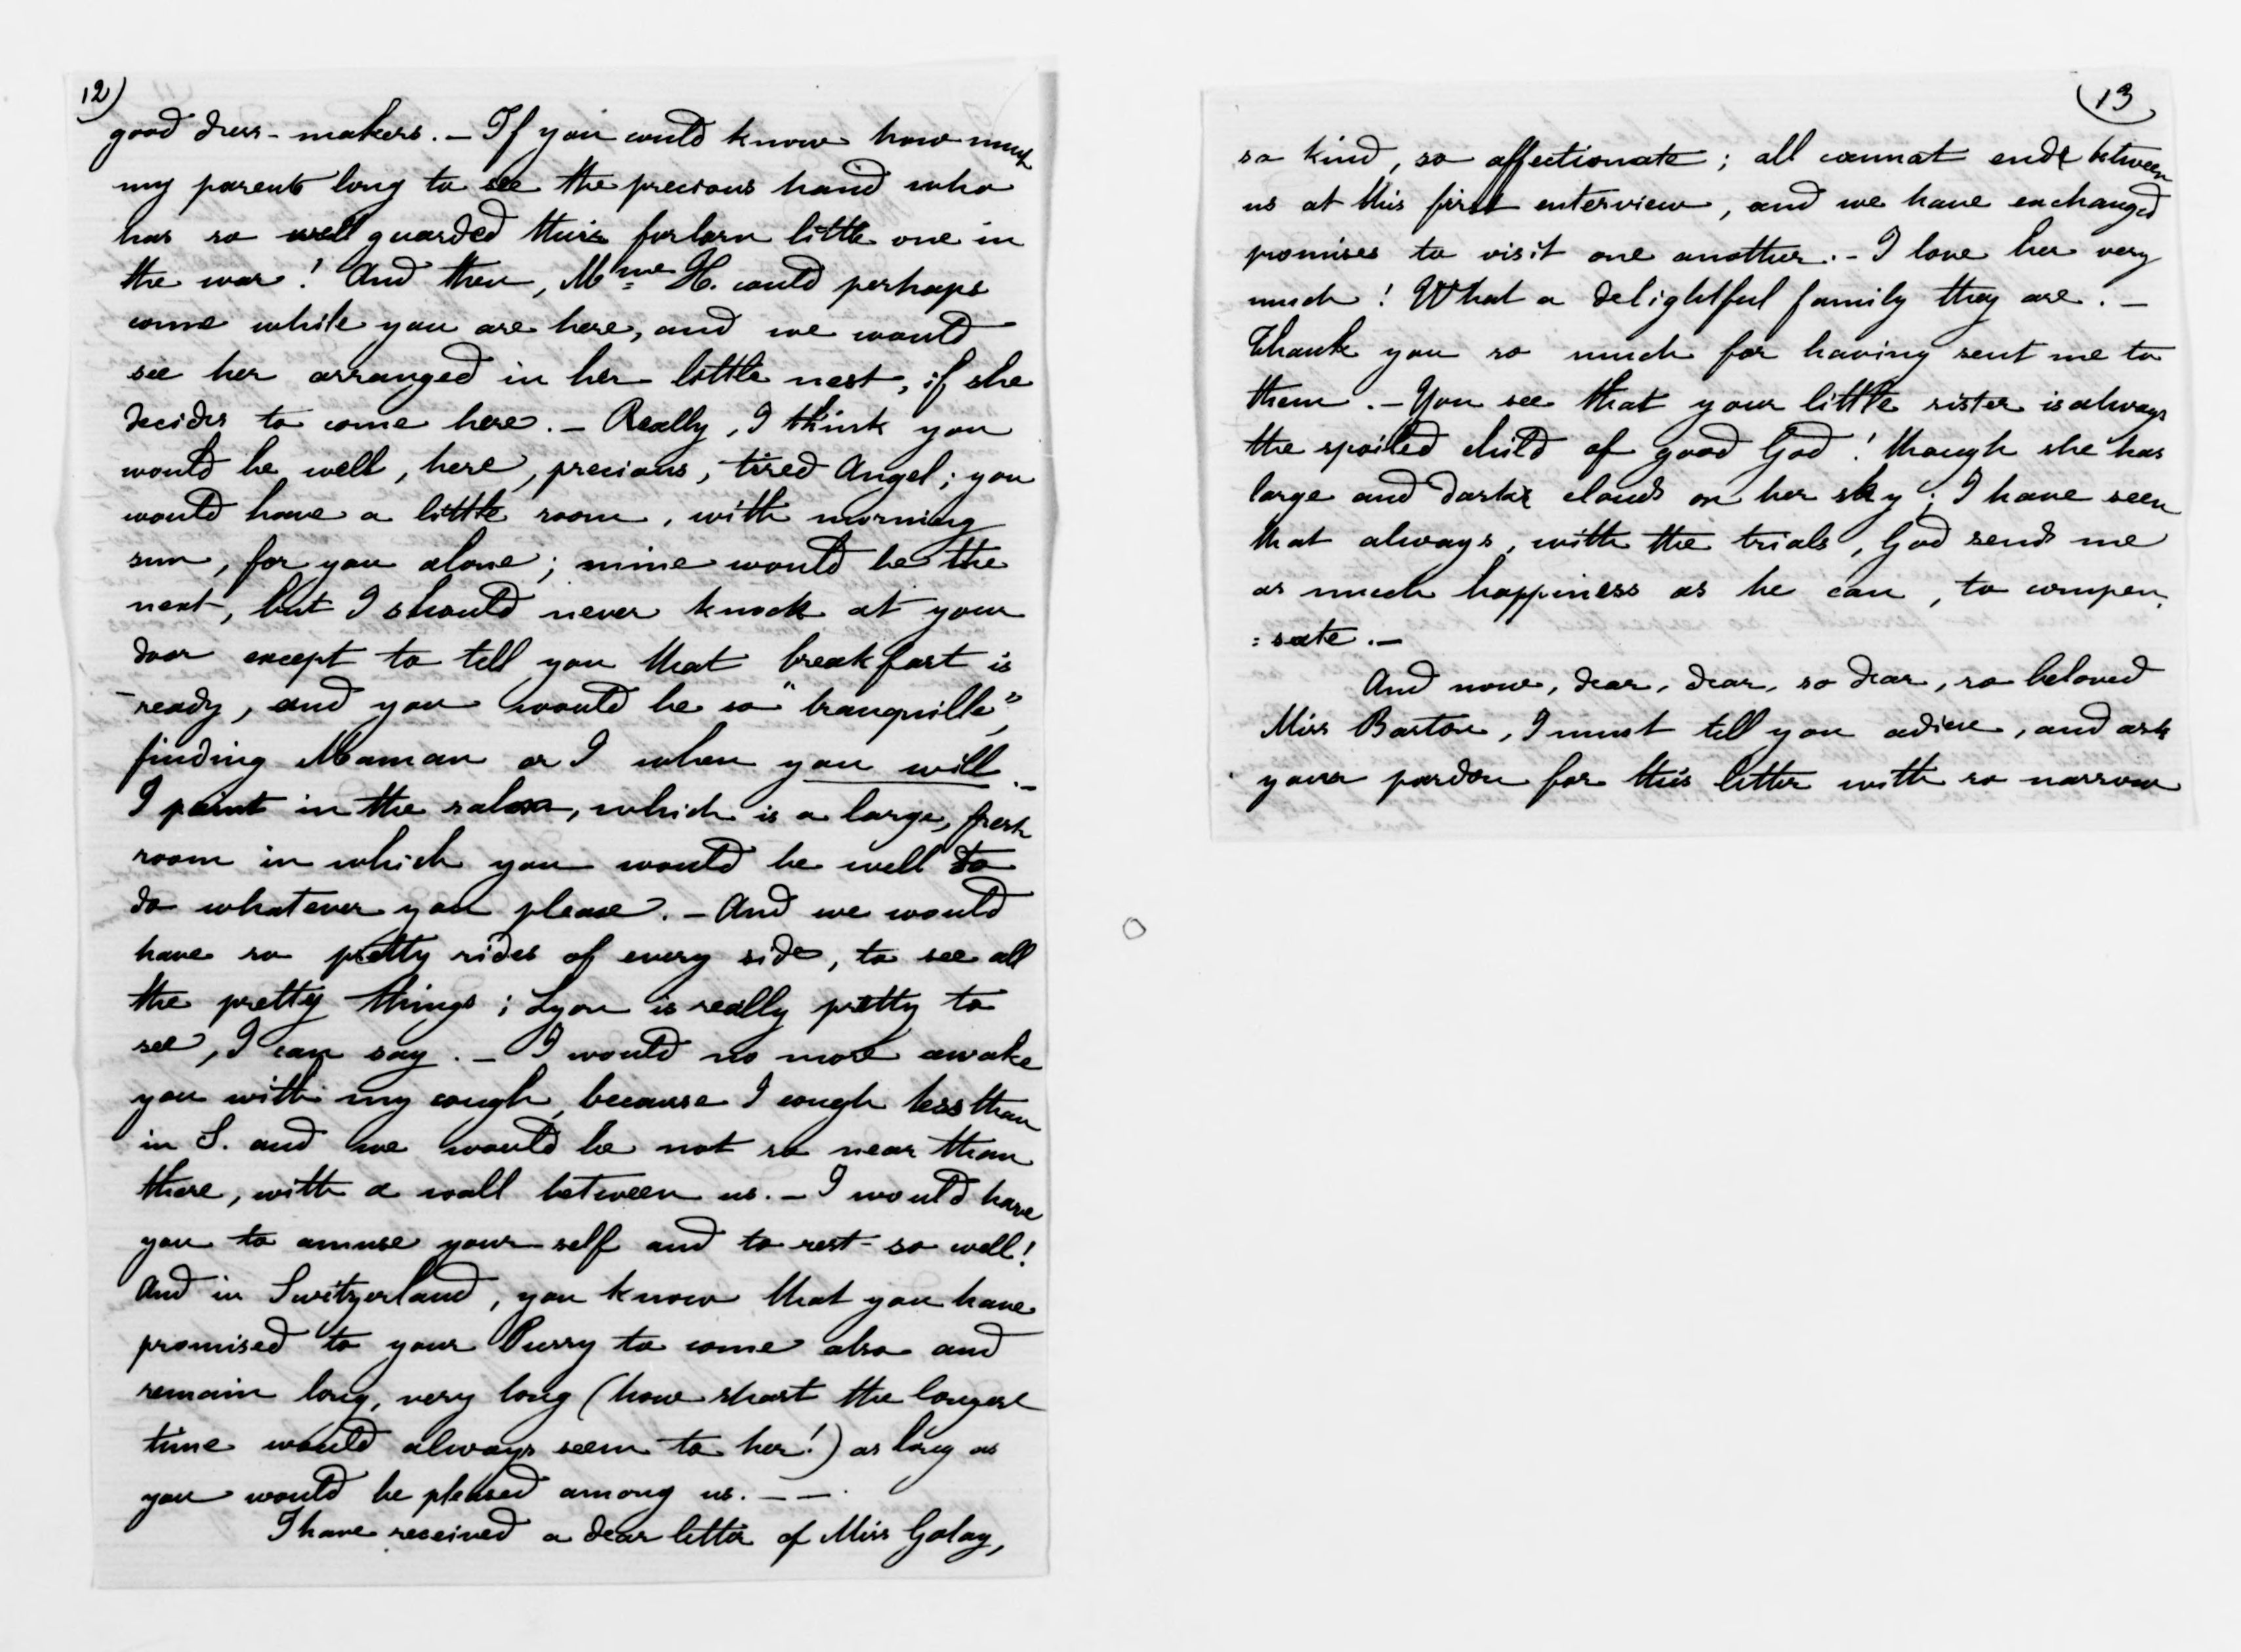 12)
good dress-makers. — If you could know how much
my parents long to see the precious hand who
has so well guarded their forlorn little one in
the war! And then, Mme H. could perhaps
come while you are here, and we would
see her arranged in her little nest, if she
decides to come here. — Really, I think you
would be well, here, precious, tired Angel; you
would have a little room, with morning
sun, for you alone; mine would be the
next, but I should never knock at your
door except to tell you that breakfast is
ready, and you would be so "tranquille",
finding Maman or I when you will. —
I paint in the salon, which is a large, fresh
room in which you would be well to
do whatever you please. — And we would
have so pretty rides of every side, to see all
the pretty things; Lyon is really pretty to
see, I can say. — I would no more awake
you with my cough, because I cough less than
in S. and we would be not so near than
there, with a wall between us. — I would have
you to amuse your self and to rest so well!
And in Switzerland, you know that you have
promised to your Purry to come also and
remain long, very long (how short the longest
time would always seem to her!) as long as
you would be pleased among us. — —.
I have received a dear letter of Miss Golay,
13
so kind, so affectionate; all cannot end between
us at this first enterview, and we have exchanged
promises to visit one another. - I love her very
much! What a delightful family they are. —
Thank you so much for having sent me to
them. — You see that your little sister is always
the spoiled child of good God! though she has
large and dark clouds on her sky; I have seen
that always, with the trials, God sends me
as much happiness as he can, to compen
=sate. —
And now, dear, dear, so dear, so beloved
Miss Barton, I must tell you adieu, and ask
your pardon for this letter with so narrow